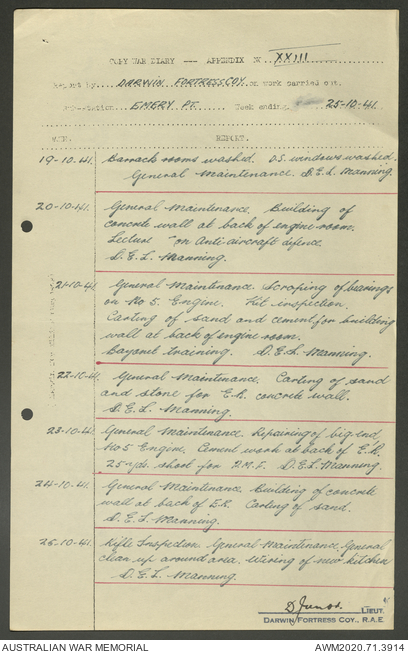 COPY WAR DIARY --- APPENDIX No XXIII
Report by DARWIN FORTRESS COY on work carried out.
Sub-station EMERY PT. Week ending 25-10-41.
DATE. REPORT.
19-10-41. Barrack rooms washed. O.S. windows washed.
General Maintenance. D.E.L. Manning.
20-10-41. General Maintenance. Building of
concrete wall at back of engine room.
Lecture on Anti aircraft defence.
D.E.L. Manning.
21-10-41 General Maintenance. Scraping of bearings
on No 5. Engine. Kit inspection.
Carting of sand and cement for building
wall at back of engine room.
Bayonet training. D.E.L. Manning.
22-10-41 General Maintenance. Carting of sand
and stone for E.R. concrete wall.
D.E.L. Manning.
23-10-41. General Maintenance. Repairing of big-end
No 5 Engine. Cement work at back of E.R.
25 yds. shoot for D.E.L. Manning.
24-10-41. General Maintenance. Building of concrete
wall at back of E.R. Carting of sand.
D.E.L. Manning.
25-10-41. Rifle Inspection. General Maintenance. General
clean up around area. Wiring of new kitchen
D.E.L. Manning.
LIEUT.
DARWIN FORTRESS COY., R.A.E.
AUSTRALIAN WAR MEMORIAL AWM2020.71.3914